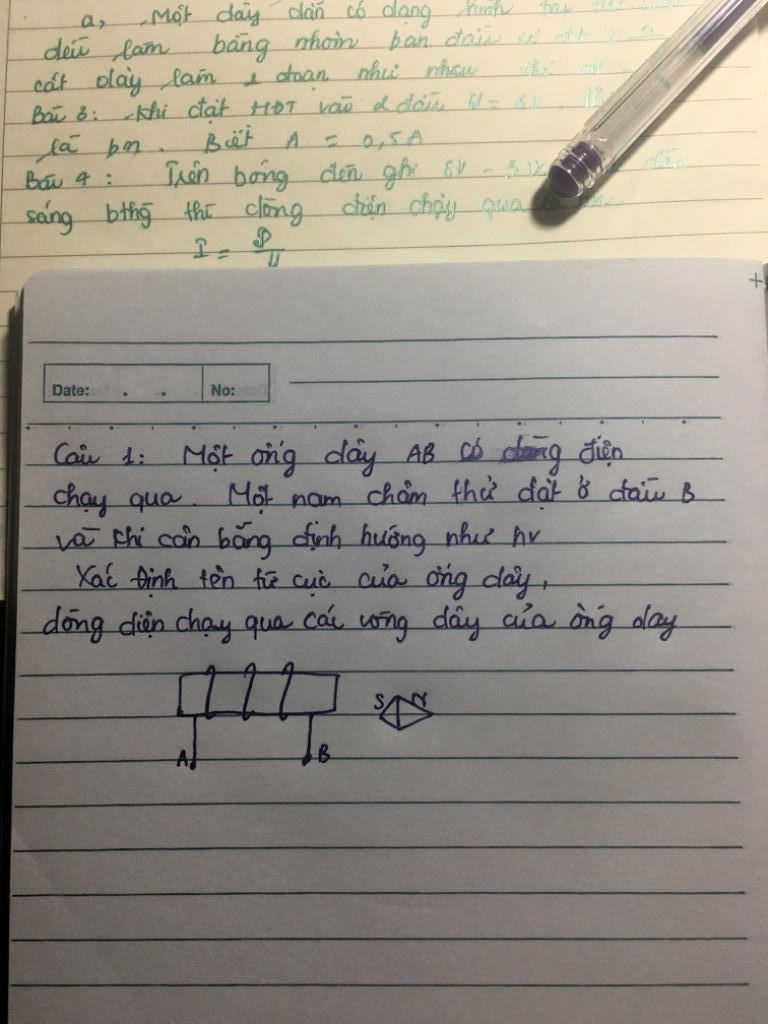 a, Một dây dẫn có dạng hình
đều làm bằng nhôm ban đầu có
cắt dây làm 2 đoạn như nhau
Bài 3: Khi đặt HĐT vào 2 đầu U = 8V,
là bn. Biết A = 0,5A
Bài 4: Trên bóng đèn ghi 6V -
sáng bthg thì dòng điện chạy qua là
I = P/U
Date: . . No:
Câu 1: Một ống dây AB có dòng điện
chạy qua. Một nam châm thử đặt ở đầu B
và khi cân bằng định hướng như hv
Xác định tên từ cực của ống dây,
dòng điện chạy qua các vòng dây của ống day
S N
A B